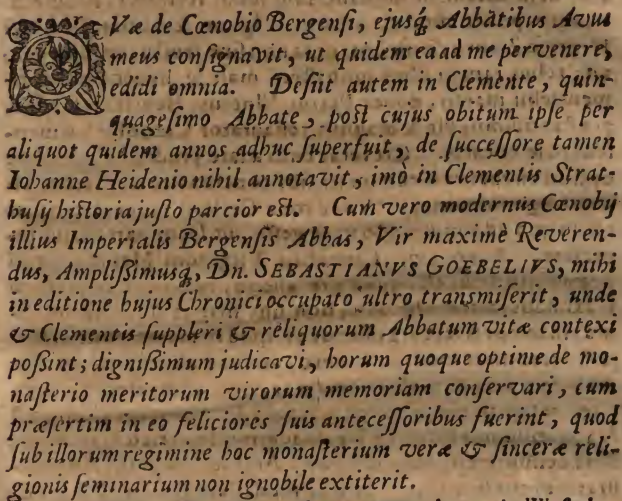 QVæ de Cœnobio Bergensi, ejusq́ Abbatibus Avus
meus consignavit, ut quidem ea ad me pervenere,
edidi omnia. Desiit autem in Clemente, quin-
quagesimo Abbate, post cujus obitum ipse per
aliquot quidem annos adhuc superfuit, de successore tamen
Iohanne Heidenio nihil annotavit, imò in Clementis Strat-
husij historia justo parcior est. Cum vero modernus Cœnobij
illius Imperialis Bergensis Abbas, Vir maximè Reveren-
dus, Amplißimusq́, Dn. SEBASTIANVS GOEBELIVS, mihi
in editione hujus Chronici occupato ultro transmiserit, unde
& Clementis suppleri & reliquorum Abbatum vitæ contexi
poßint; dignißimum judicavi, horum quoque optime de mo-
nasterio meritorum virorum memoriam conservari, cum
præsertim in eo feliciores suis antecessoribus fuerint, quod
sub illorum regimine hoc monasterium veræ & sinceræ reli-
gionis seminarium non ignobile extiterit.